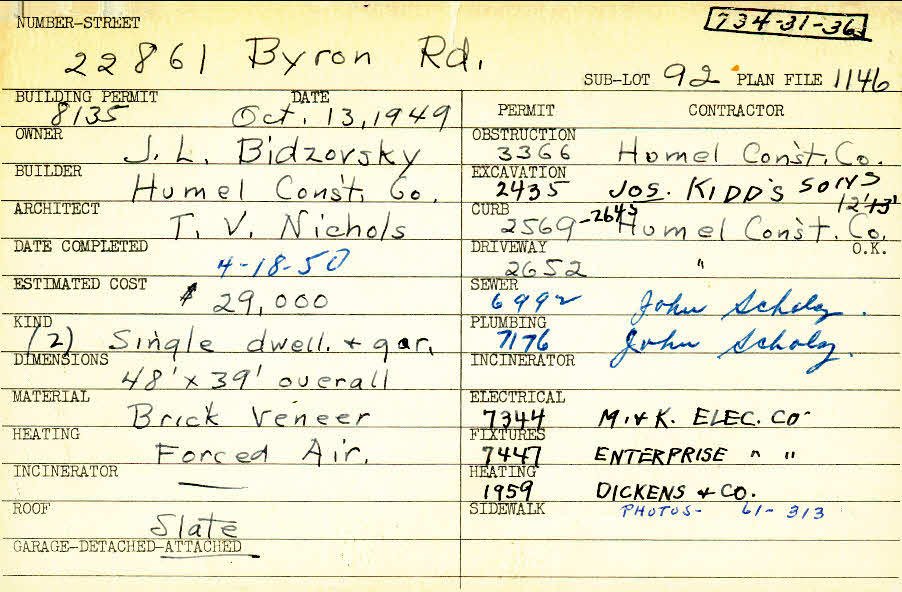 NUMBER-STREET
734-31-36
22861 Byron Rd.
SUB-LOT 92 PLAN FILE 1146
BUILDING PERMIT DATE
8135 Oct. 13, 1949
OWNER
J. L. Bidzovsky
BUILDER
Humel Const. Co.
ARCHITECT
T. V. Nichols
DATE COMPLETED
4-18-50
ESTIMATED COST
$ 29,000
KIND
(2) Single dwell. + gar.
DIMENSIONS
48' x 39' overall
MATERIAL
Brick Veneer
HEATING
Forced Air.
INCINERATOR
—
ROOF
Slate
GARAGE-DETACHED-ATTACHED
PERMIT CONTRACTOR
OBSTRUCTION
3366 Humel Const. Co.
EXCAVATION
2435 JOS. KIDD'S SONS
CURB 12' 13'
2569-2645 Humel Const. Co.
DRIVEWAY O.K.
2652 "
SEWER
6992 John Scholz.
PLUMBING
7176 John Scholz.
INCINERATOR
ELECTRICAL
7344 M. & K. ELEC. CO
FIXTURES
7447 ENTERPRISE " "
HEATING
1959 DICKENS & CO.
SIDEWALK PHOTOS- 61-313